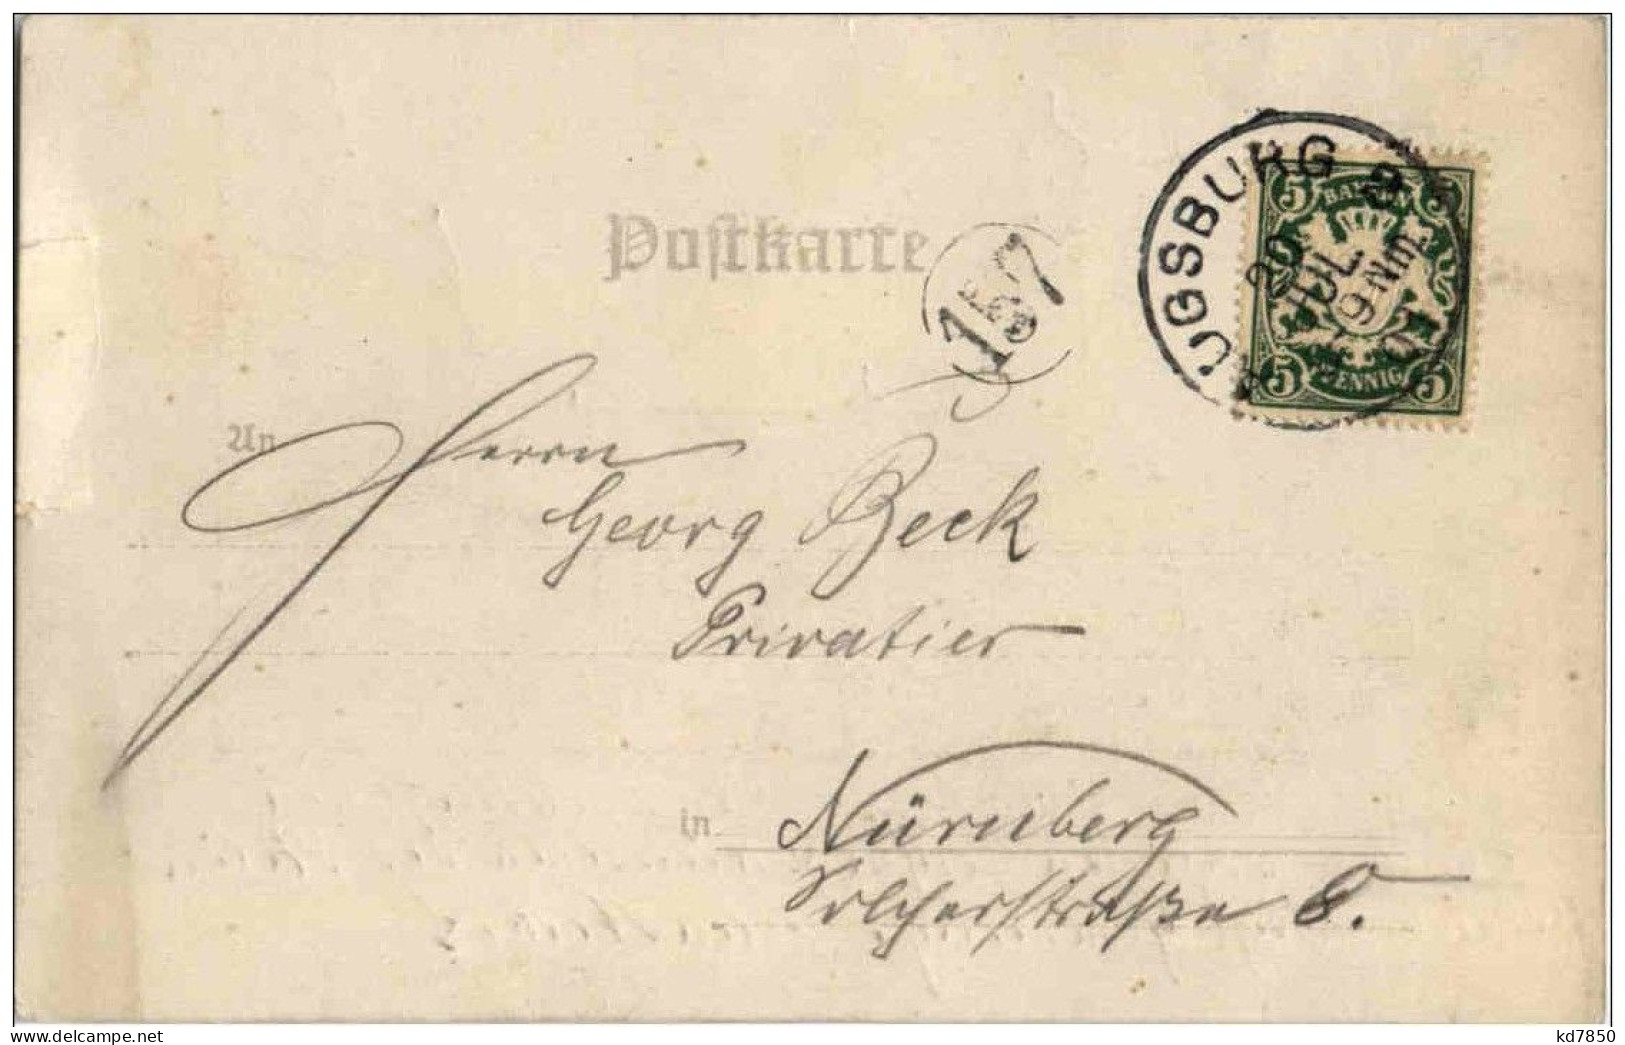 Postkarte
AUGSBURG 2
20
JUL
8-9 Nm.
01
5 BAYERN 5
5 PFENNIG 5
157
An Herrn
Georg Beck
Privatier
in Nürnberg
www.delcampe.net
kd7850